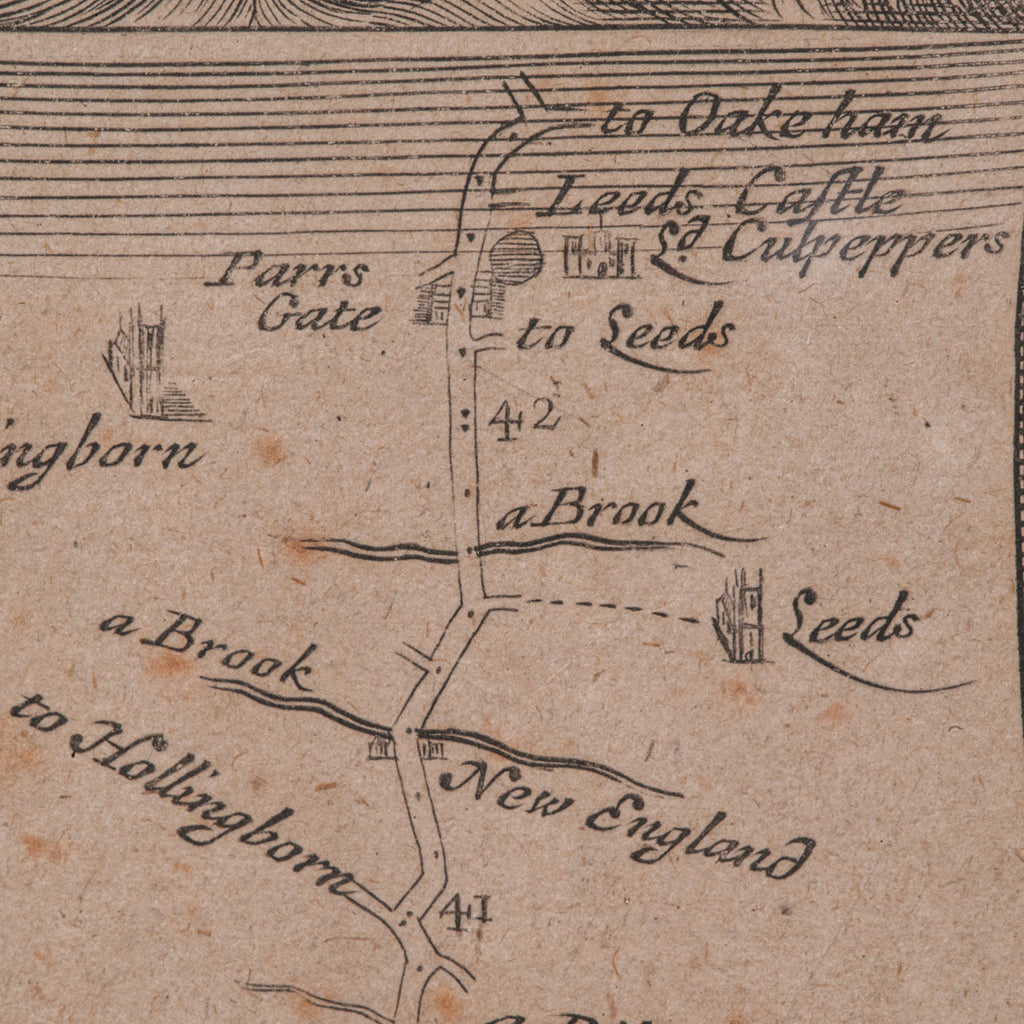 to Oakeham
Leeds Caſtle
Ld. Culpeppers
Parrs
Gate
to Leeds
42
ingborn
a Brook
Leeds
a Brook
to Hollingborn
New England
41